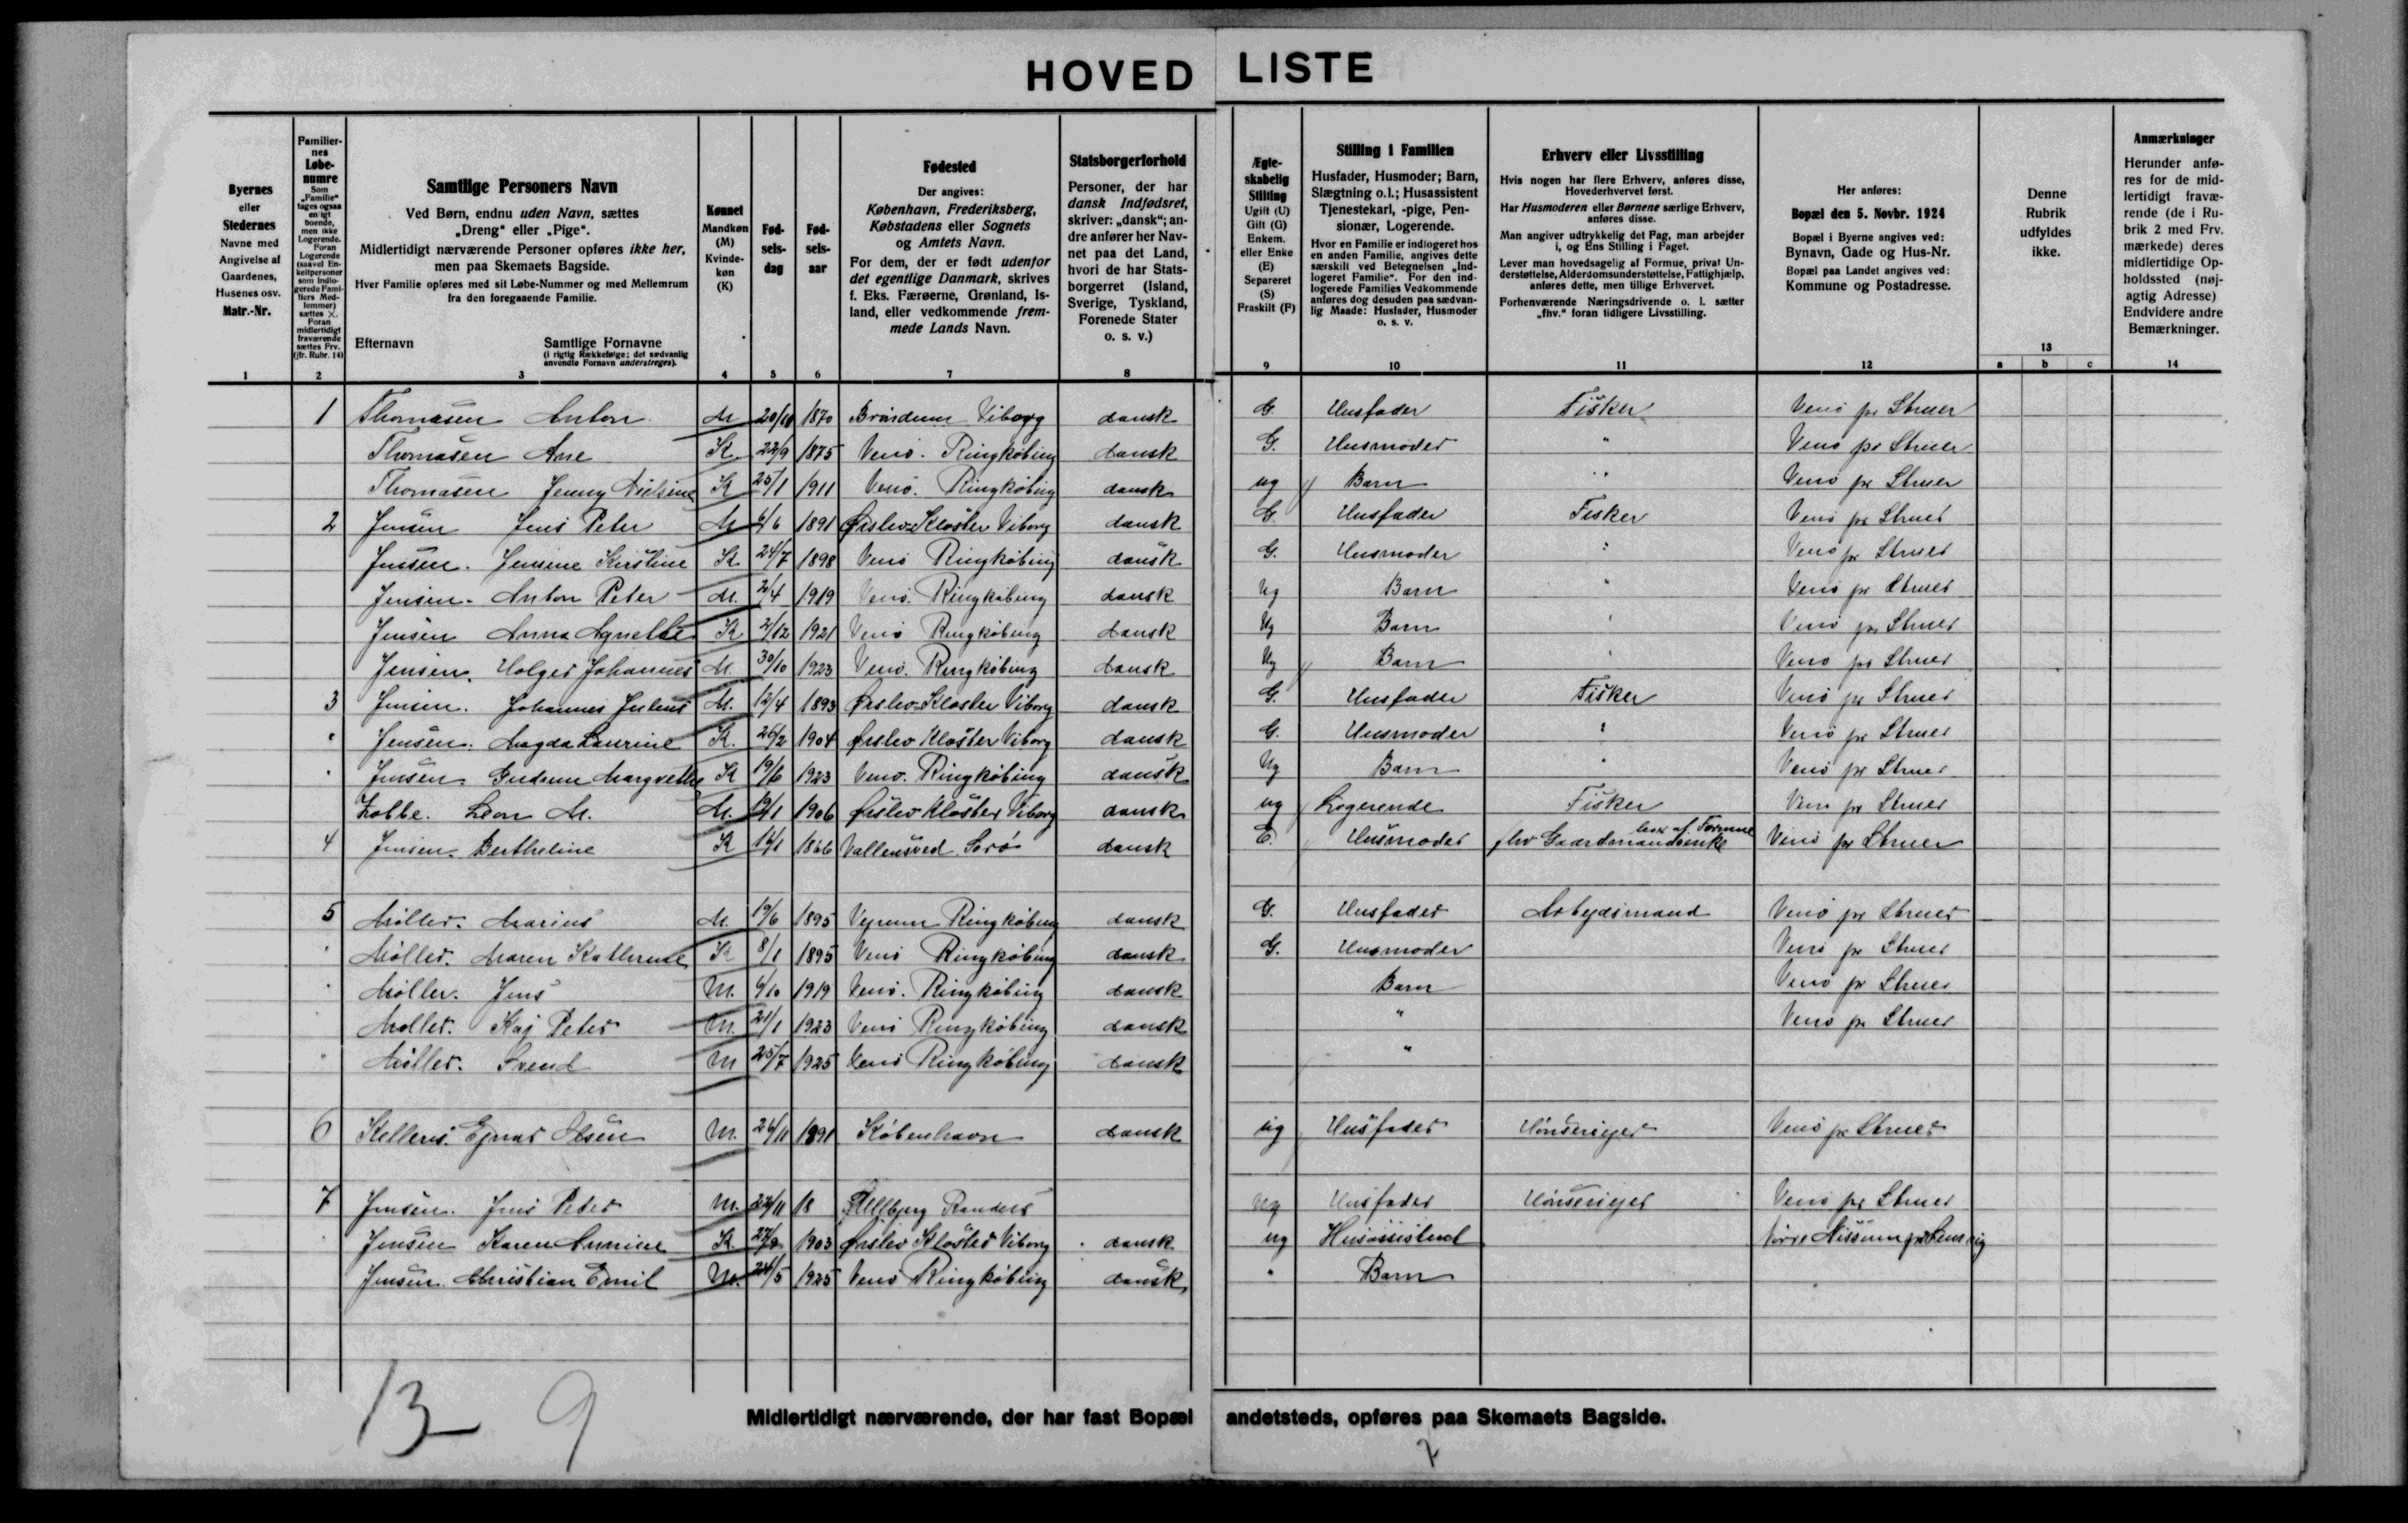 HOVED LISTE
Byernes eller Stedernes Navne med Angivelse af Gaardenes, Husenes osv. Matr.-Nr.
Familiernes Løbenumre Som „Familie“ tages ogsaa enligt boende, men ikke Logerende. Foran Logerende (saavel Enkeltpersoner som indlogerede Familiers Medlemmer) sættes X. Foran midlertidigt fraværende sættes Frv. (jfr. Rubr. 14)
Samtlige Personers Navn
Ved Børn, endnu uden Navn, sættes „Dreng“ eller „Pige“.
Midlertidigt nærværende Personer opføres ikke her, men paa Skemaets Bagside.
Hver Familie opføres med sit Løbe-Nummer og med Mellemrum fra den foregaaende Familie.
Efternavn Samtlige Fornavne (i rigtig Rækkefølge; det sædvanlig anvendte Fornavn understreges).
Kønnet Mandkøn (M) Kvindekøn (K)
Fødselsdag
Fødselsaar
Fødested
Der angives: København, Frederiksberg, Købstadens eller Sognets og Amtets Navn.
For dem, der er født udenfor det egentlige Danmark, skrives f. Eks. Færøerne, Grønland, Island, eller vedkommende fremmede Lands Navn.
Statsborgerforhold
Personer, der har dansk Indfødsret, skriver: „dansk“; andre anfører her Navnet paa det Land, hvori de har Statsborgerret (Island, Sverige, Tyskland, Forenede Stater o. s. v.)
Ægteskabelig Stilling Ugift (U) Gift (G) Enkem. eller Enke (E) Separeret (S) Fraskilt (F)
Stilling i Familien
Husfader, Husmoder; Barn, Slægtning o.l.; Husassistent Tjenestekarl, -pige, Pensionær, Logerende.
Hvor en Familie er indlogeret hos en anden Familie, angives dette særskilt ved Betegnelsen „Indlogeret Familie“. For den indlogerede Families Vedkommende anføres dog desuden paa sædvanlig Maade: Husfader, Husmoder o. s. v.
Erhverv eller Livsstilling
Hvis nogen har flere Erhverv, anføres disse, Hovederhvervet først.
Har Husmoderen eller Børnene særlige Erhverv, anføres disse.
Man angiver udtrykkelig det Fag, man arbejder i, og Ens Stilling i Faget.
Lever man hovedsagelig af Formue, privat Understøttelse, Alderdomsunderstøttelse, Fattighjælp, anføres dette, men tillige Erhvervet.
Forhenværende Næringsdrivende o. l. sætter „fhv.“ foran tidligere Livsstilling.
Her anføres:
Bopæl den 5. Novbr. 1924
Bopæl i Byerne angives ved: Bynavn, Gade og Hus-Nr.
Bopæl paa Landet angives ved: Kommune og Postadresse.
Denne Rubrik udfyldes ikke.
Anmærkninger
Herunder anføres for de midlertidigt fraværende (de i Rubrik 2 med Frv. mærkede) deres midlertidige Opholdssted (nøjagtig Adresse) Endvidere andre Bemærkninger.
1 2 3 4 5 6 7 8 9 10 11 12 13 a b c 14
1 Thomasen Anton M 20/10 1870 Viborg dansk G. Husfader Fisker Venø pr Struer
Thomasen Ane K 22/9 1875 Venø. Ringkøbing dansk G. Husmoder " Venø pr Struer
Thomasen Jenny Nielsine K 25/1 1911 Venø. Ringkøbing dansk ug Barn " Venø pr Struer
2 Jensen Jens Peter M 6/6 1891 Ørslev-Kloster Viborg dansk G. Husfader Fisker Venø pr Struer
Jensen. Jensine Kirstine K 24/7 1898 Venø Ringkøbing dansk G. Husmoder " Venø pr Struer
Jensen. Anton Peter M. 2/4 1919 Venø. Ringkøbing dansk Ug Barn " Venø pr Struer
Jensen Anna Agnethe K 2/12 1921 Venø Ringkøbing dansk Ug Barn " Venø pr Struer
Jensen. Holger Johannes M 30/10 1923 Venø. Ringkøbing dansk Ug Barn " Venø pr Struer
3 Jensen. Johannes Julius M. 12/4 1893 Ørslev-Kloster Viborg dansk G. Husfader Fisker Venø pr Struer
" Jensen. Magda Laurine K. 26/2 1904 Ørslev Kloster Viborg dansk G. Husmoder " Venø pr Struer
" Jensen. Margrethe K 19/6 1923 Venø. Ringkøbing dansk Ug Barn " Venø pr Struer
Leon M. M. 1906 Ørslev Kloster Viborg dansk ug Logerende Fisker Venø pr Struer
4 Jensen. Bertheline K 14/1 1866 Vallensved. Sorø dansk E. Husmoder fhv Gaardmandsenke lever af Formue Venø pr Struer
5 Møller. Marius M. 19/6 1895 Vejrum Ringkøbing dansk G. Husfader Arbejdsmand Venø pr Struer
" Møller. Maren Kathrine K 8/1 1895 Venø Ringkøbing dansk G. Husmoder Venø pr Struer
" Møller. Jens M. 6/10 1919 Venø. Ringkøbing dansk Barn Venø pr Struer
" Møller. Kaj Peter M. 21/1 1923 Venø Ringkøbing dansk " Venø pr Struer
" Møller. Svend M 25/7 1925 Venø Ringkøbing dansk "
6 Kelleris. Ejnar Olsen M. 26/11 1891 København dansk ug Husfader Hønseriejer Venø pr Struer
7 Jensen. Jens Peter M. 22/11 18 Randers Ug Husfader Hønseriejer Venø pr Struer
" Jensen Karen K. 1903 Ørslev Kloster Viborg dansk ug Husassistent Nørre Nissum pr Lemvig
Jensen. Christian Emil M. 24/5 1925 Venø Ringkøbing dansk " Barn
13 9
Midlertidigt nærværende, der har fast Bopæl andetsteds, opføres paa Skemaets Bagside.
7